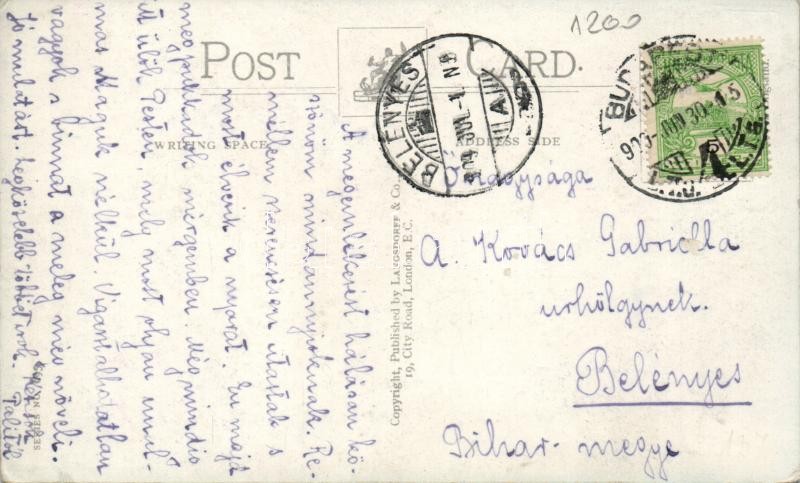 1200
POST CARD.
WRITING SPACE
ADDRESS SIDE
BELÉNYES
BUDAPEST
A megemlékezést hálásan kö-
szönöm mindannyiuknak. Re-
mélem szerencsésen utaztak s
most élvezik a nyarat. Én majd
megpukkadok mérgemben. Még mindig
itt ülök Pesten, mely most olyan unal-
mas Maguk nélkül. Vigasztalhatatlan
vagyok s kinnat a meleg még növeli.
Jó mulatást. Legközelebb többet írok. Kézcsók
Palitól
Copyright, Published by LANGSDORFF & Co.,
19, City Road, London, E.C.
SERIES NO.
Őnagysága
A. Kovács Gabriella
urhölgynek.
Belényes
Bihar-megye